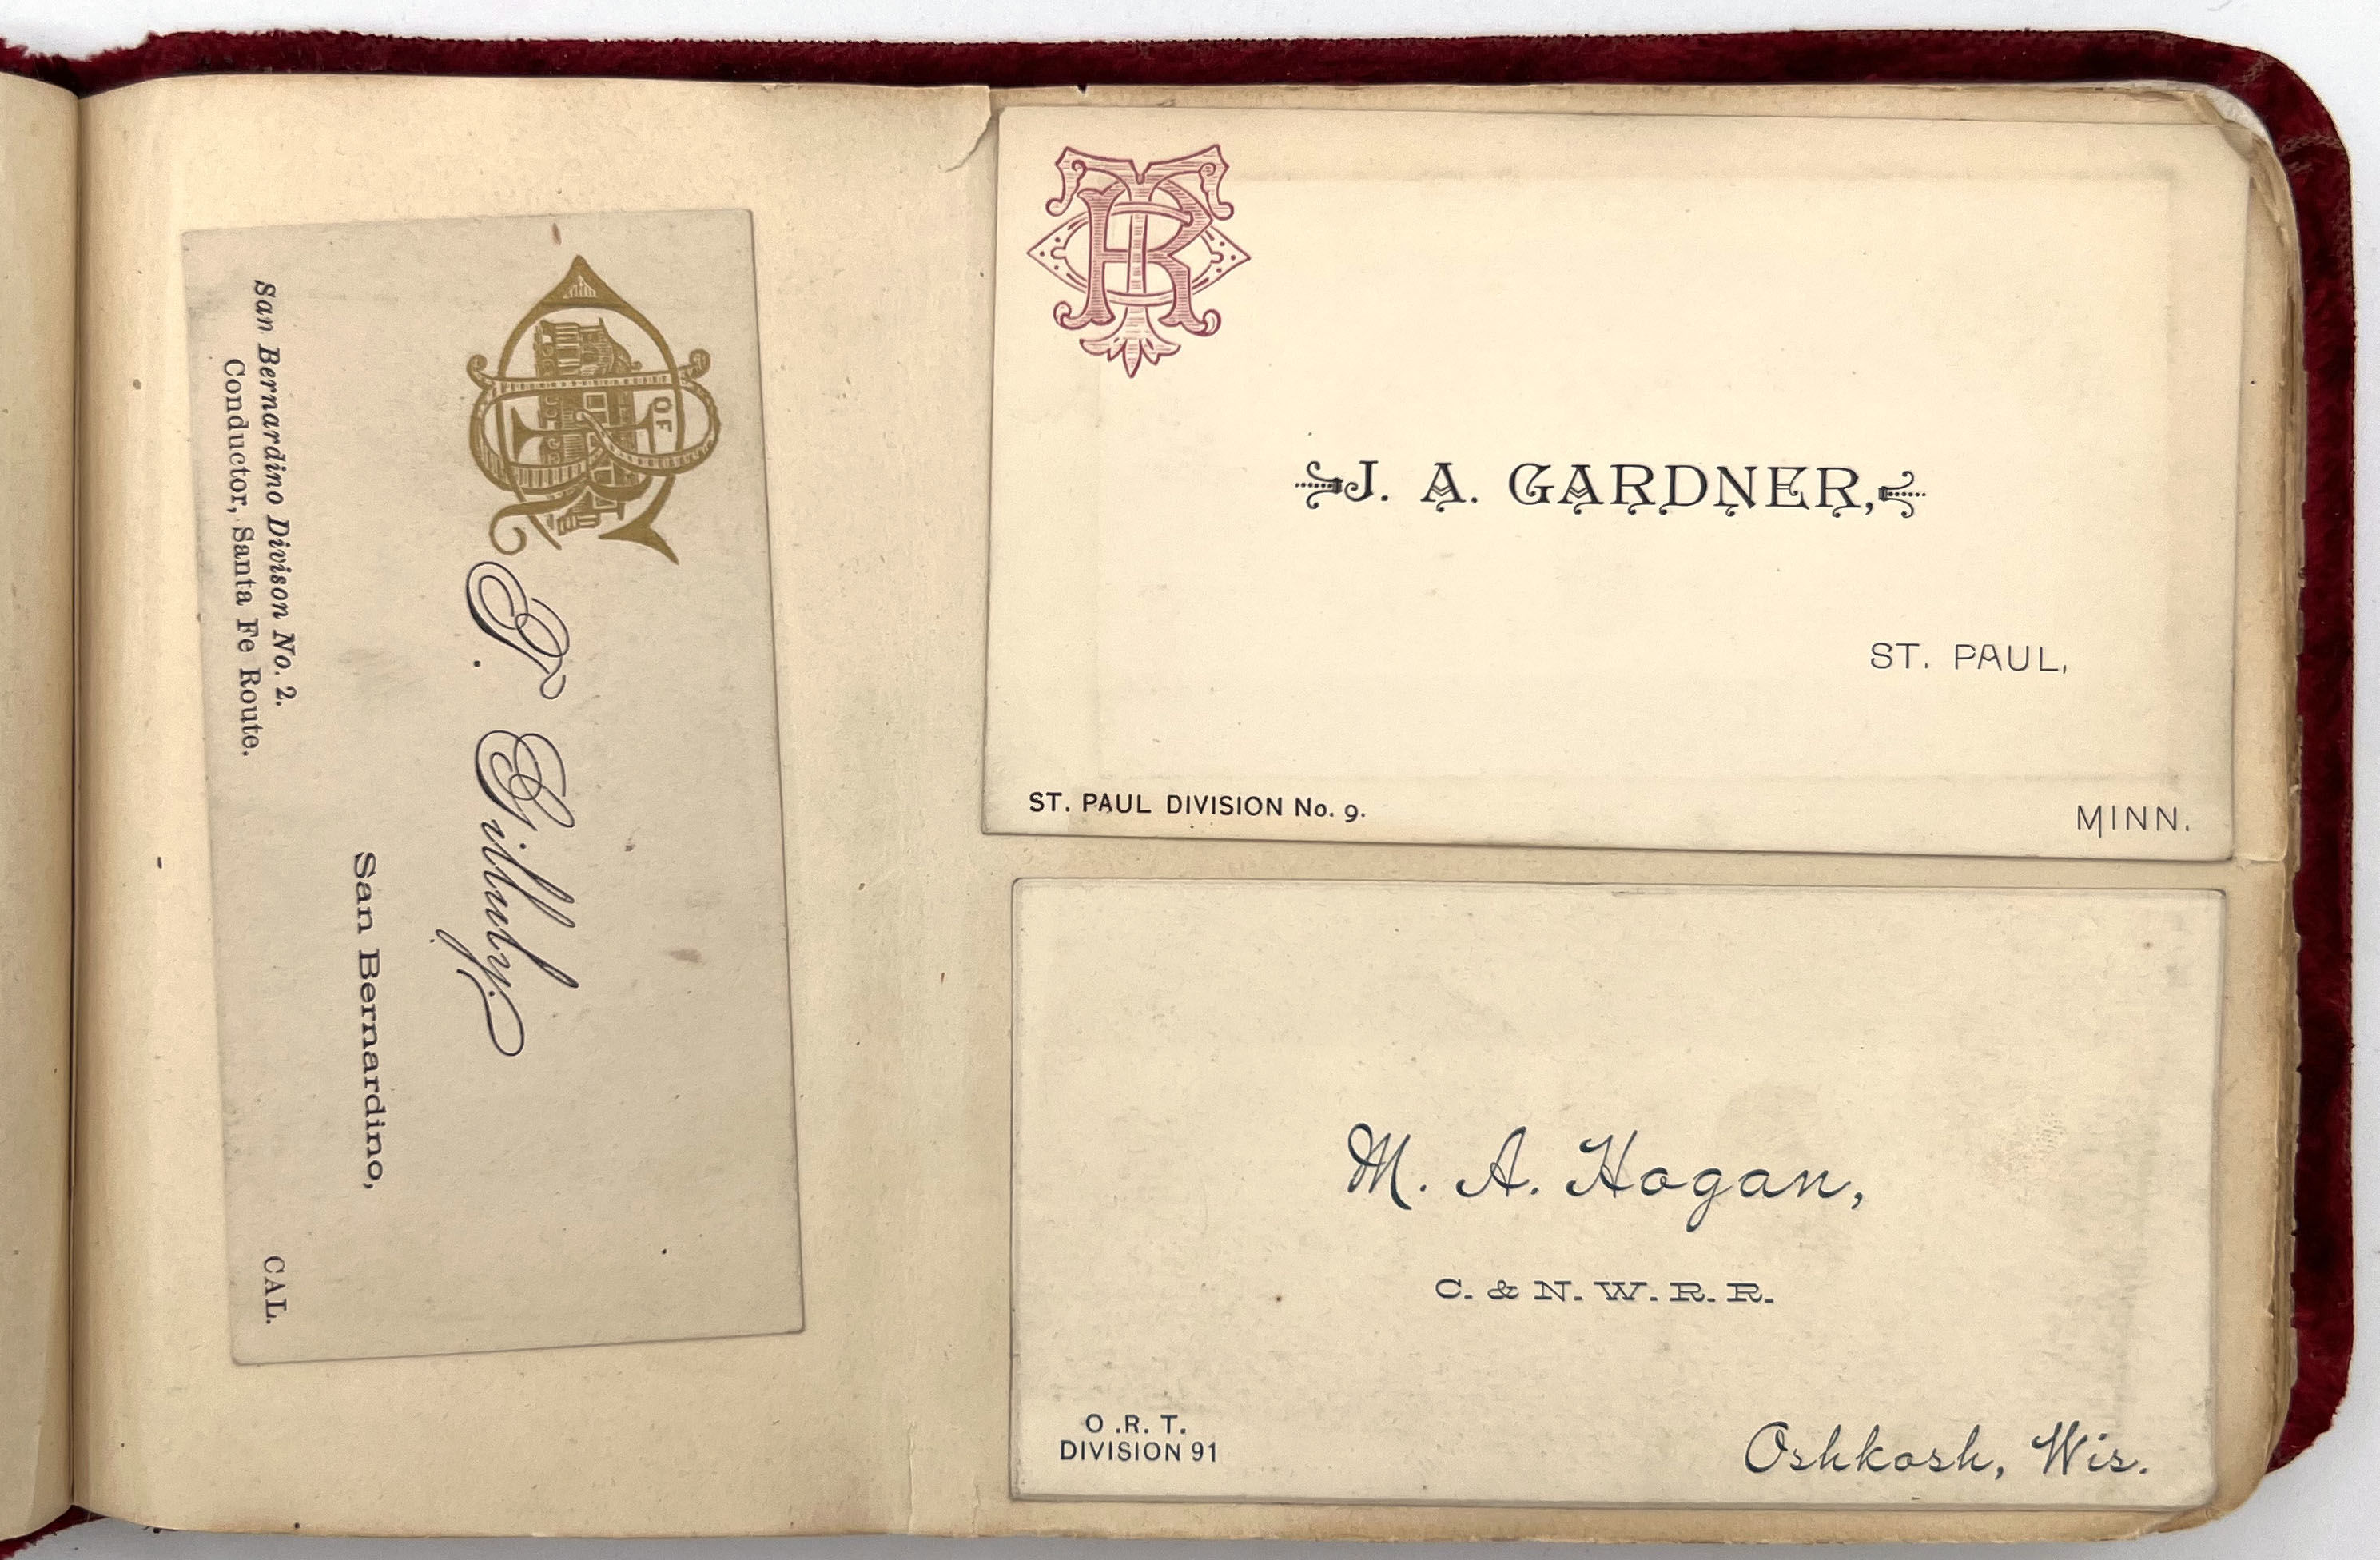 OF
Gilluly.
San Bernardino,
San Bernardino Divison No. 2.
Conductor, Santa Fe Route.
CAL.
J. A. GARDNER,
ST. PAUL,
ST. PAUL DIVISION No. 9.
MINN.
M. A. Hogan,
C. & N. W. R. R.
O .R. T.
DIVISION 91
Oshkosh, Wis.